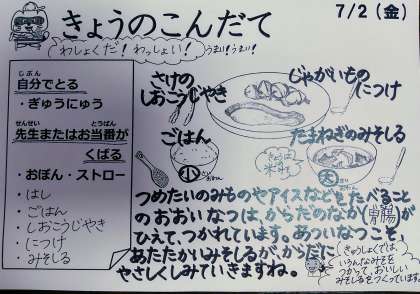 きょうのこんだて
7/2(金)
わしょくだ!わっしょい!
うまい!うまい!
じぶん
自分でとる
・ぎゅうにゅう
せんせい とうばん
先生またはお当番が
くばる
・おぼん・ストロー
・はし
・ごはん
・しおこうじやき
・につけ
・みそしる
さけの
しおこうじやき
じゃがいもの
につけ
ごはん
小
たまねぎのみそしる
大
つめたいのみものやアイスなどをたべること
のおおいなつは、からだのなか(胃腸)が
ひえて、つかれています。あついなつこそ、
あたたかいみそしるが、からだに
やさしくしみていきますね。
きゅうしょくでは、
いろんなみそを
つかって、おいしい
みそしるをつくっています。